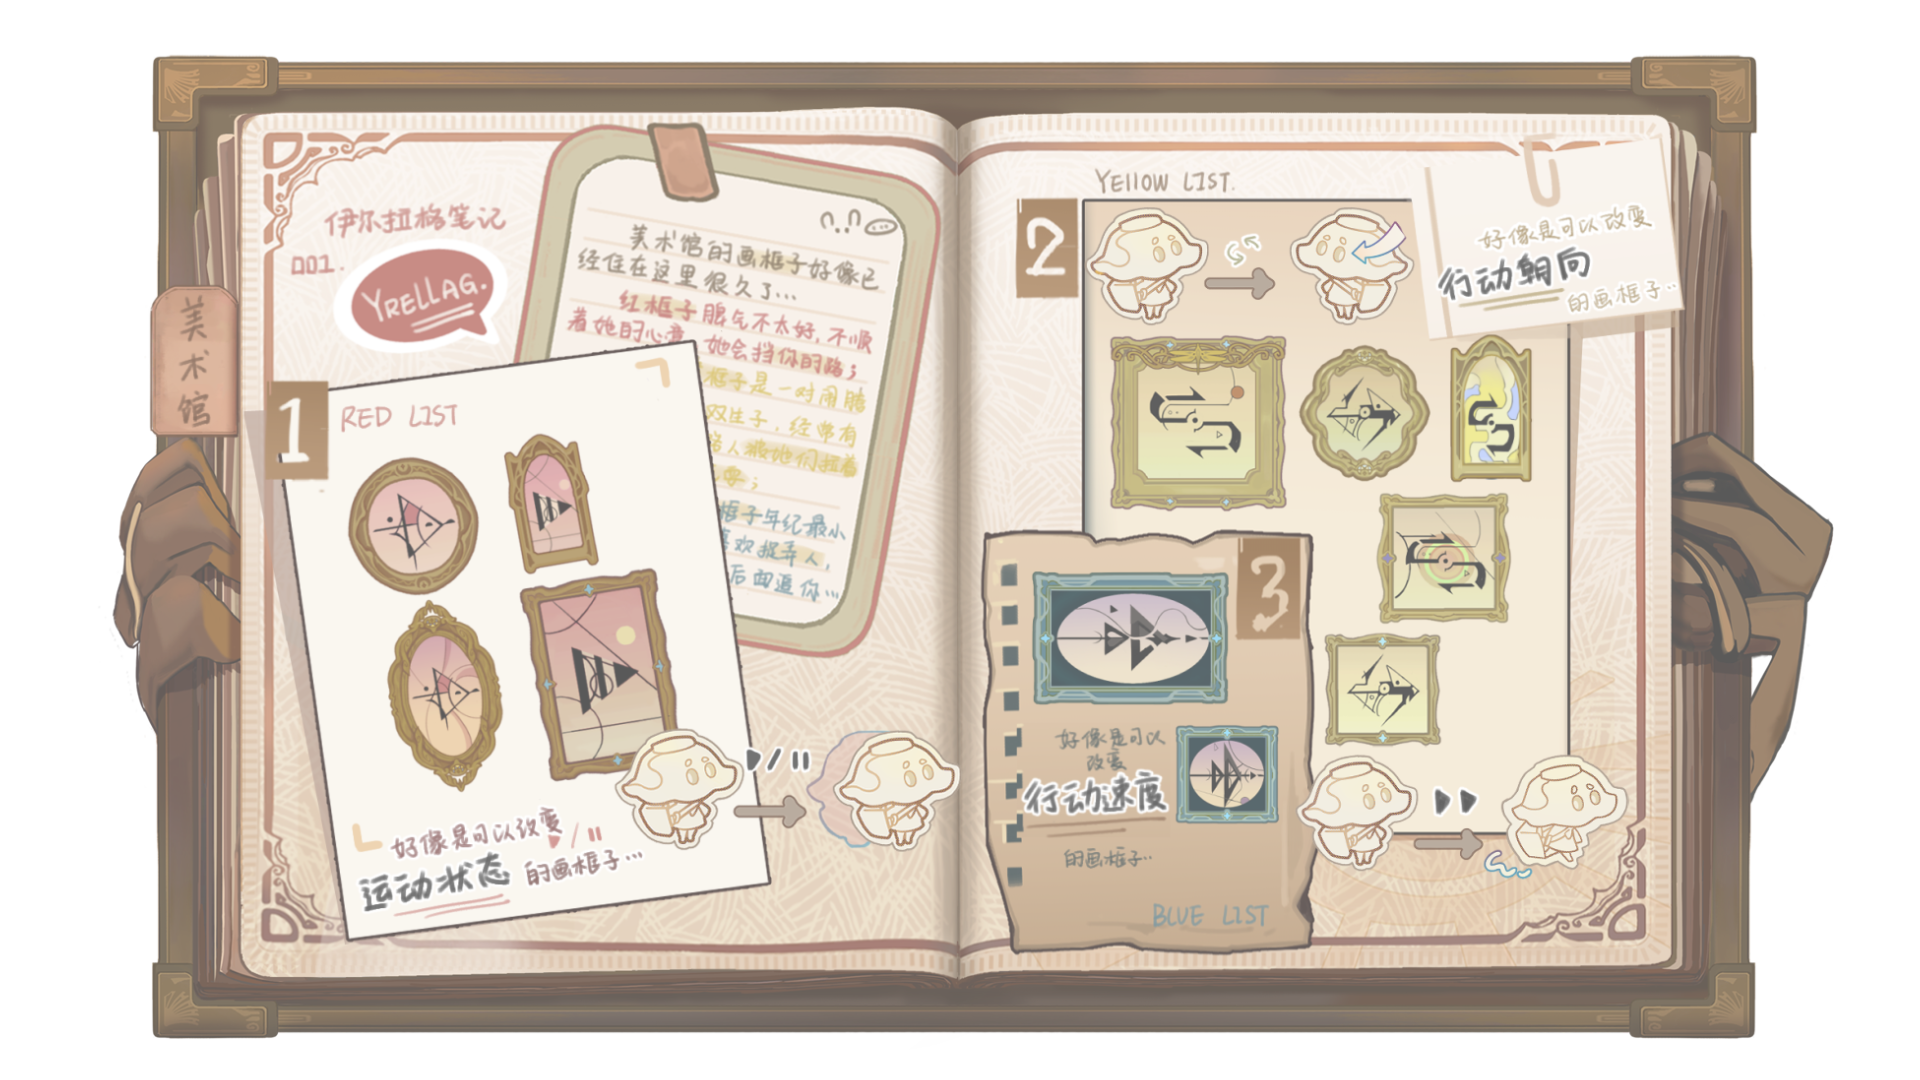 美术馆
伊尔拉格笔记
001.
YRELLAG.
美术馆的画框子好像已
经住在这里很久了...
红框子脾气不太好,不顺
着她的心意 她会挡你的路;
框子是一对闹腾
双生子,经常有
路人被她们拉着
框子年纪最小
喜欢捉弄人,
后面逗你...
1
RED LIST
好像是可以改变
运动状态 的画框子...
YEllOW LIST.
2
好像是可以改变
行动朝向
的画框子..
3
好像是可以
改变
行动速度
的画框子..
BLUE LIST